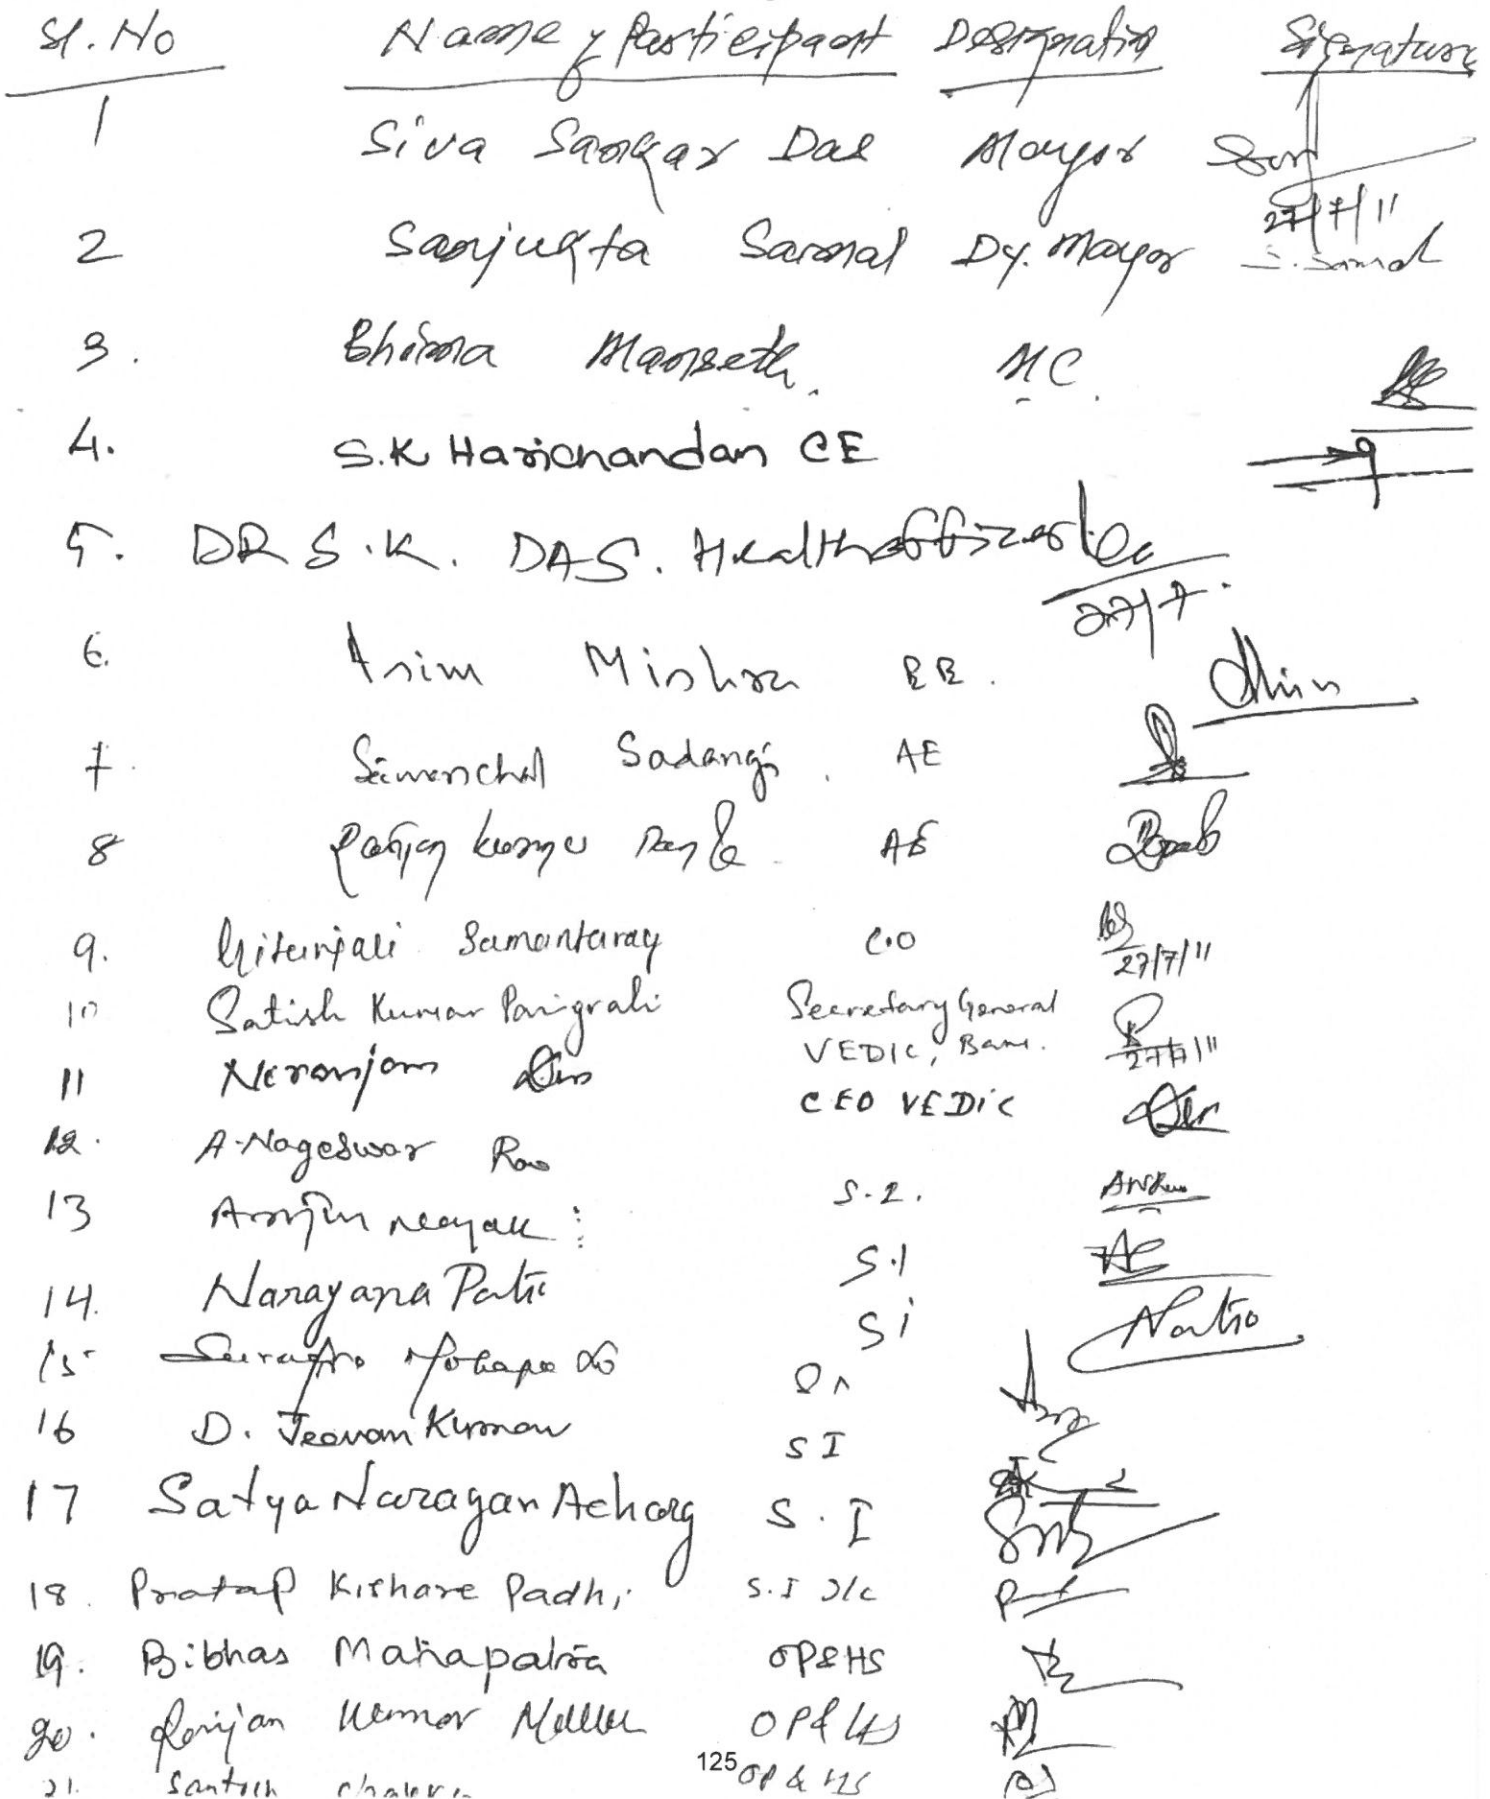 Sl. No Name of Participant Designation Signature
1 Siva Sankar Das Mayor
27/7/11
2 Sanjukta Samal Dy. Mayor S. Samal
3. Bhima Manseth. MC.
4. S.K Harichandan CE
5. DR S.K. DAS. Health officer
27/7.
6. Asim Mishra EE.
7. Simanchal Sadangi. AE
8 Kumar AE
9. Gitanjali Samantaray C.O
27/7/11
10 Satish Kumar Panigrahi Secretary General
VEDIC, Bam. 27/7/11
11 Neranjan Das CEO VEDIC
12. A. Nageswar Rao S.I.
13 Arjun Nayak S.I
14. Narayana Patro SI
15 SI
16 D. Jeevan Kumar SI
17 Satya Narayan Achary S.I
18. Pratap Kishore Padhi S.I I/c
19. Bibhas Mahapatra OP&HS
20. Ranjan Kumar OP&HS
125
21. Santosh OP & HS